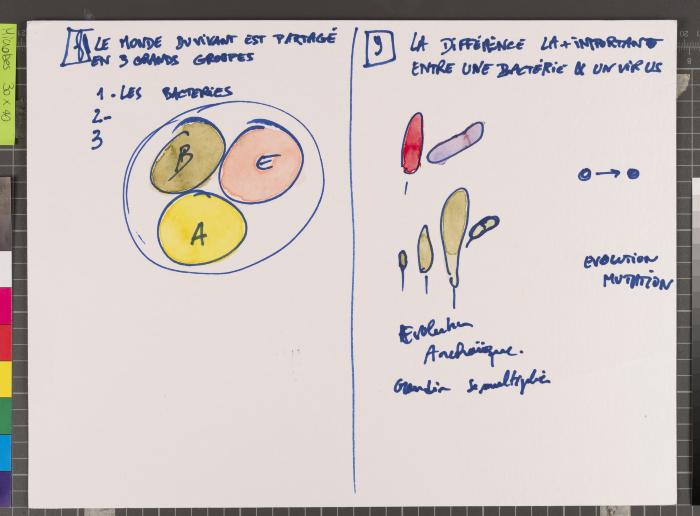 Microbes 30 x 40
8 LE MONDE DU VIVANT EST PARTAGÉ
EN 3 GRANDS GROUPES
1. LES BACTERIES
2-
3
B
E
A
9 LA DIFFÉRENCE LA + IMPORTANTE
ENTRE UNE BACTÉRIE & UN VIRUS
EVOLUTION
MUTATION
Evolution
Archaïque.
Grandir se multiplier